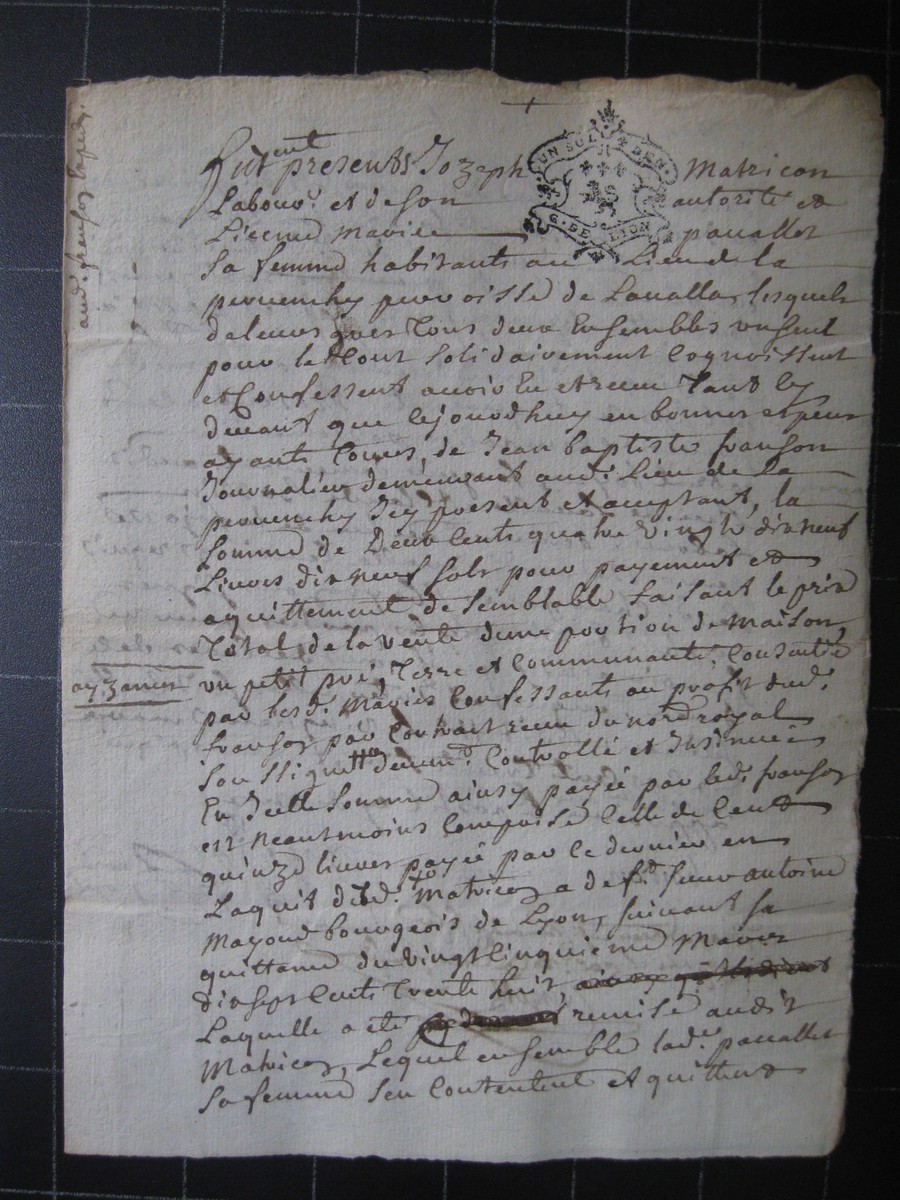 UN SOL
DEN
G. DE LYON
furent presents Jozeph Matricon
Labour. et de son autorité et
Licence Marie panallet
sa femme habitants au Lieu de la
peruenchy parroisse de Laualla, lesquels
de leurs grés tous deux Ensembles un seul
pour le tout solidairement Cognoissent
et Confessent auoir Eu et receu tant cy
deuant que cejourdhuy en bonnes especes
ayants Cours, de Jean baptiste franson
Journalier demeurant aud. Lieu de la
peruenchy Icy present et acceptant, la
somme de Deux Cents quatre vingts dix neuf
Liures dix neuf sols pour payement et
aquittement de semblable faisant le prix
Total de la vente d'une portion de Maison,
un petit pré, Terre et Communauté, Consentie
par lesd. Mariés Confessants au profit dud.
franson par Contract receu du nore royal
soussigné deuem. Controllé et Insinué
En Icelle somme ainsy payée par led. franson
est neantmoins Comprise Celle de Cent
quinze liures payée par ce dernier en
Laquit dud. Matricon a def. sieur antoine
Mayoud bourgeois de Lyon, suiuant sa
quittance du vingt Cinquieme Mars
dix sept Cents trente huit
Laquelle a eté remise audit
Matricon, Lequel ensemble lad. panallet
sa femme sen Contentent et quittent